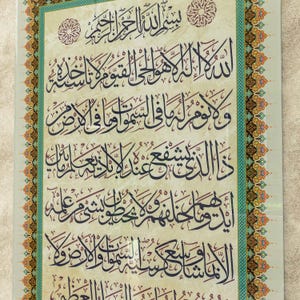 بسم الله الرحمن الرحيم
الله لا إله إلا هو الحي القيوم لا تأخذه سنة
ولا نوم له ما في السموات وما في الأرض
ذا الذي يشفع عنده إلا بإذنه يعلم ما بين
أيديهم وما خلفهم ولا يحيطون بشيء من علمه
إلا بما شاء وسع كرسيه السموات والأرض ولا
العلي العظيم